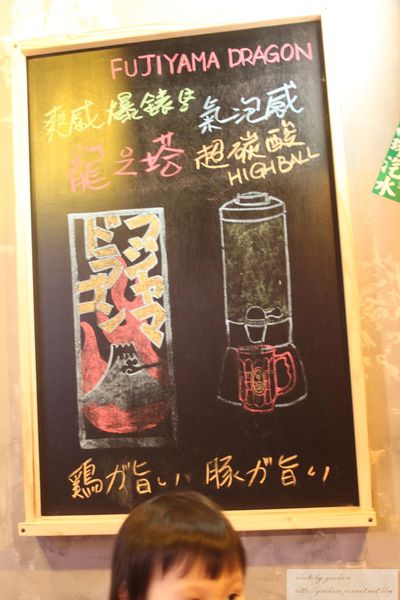 FUJIYAMA DRAGON
爽感爆錶
氣泡感
龍之塔
超碳酸
HIGHBALL
フジヤマ
ドラゴン
鶏が旨い 豚が旨い
汽水
photo by yinihsin